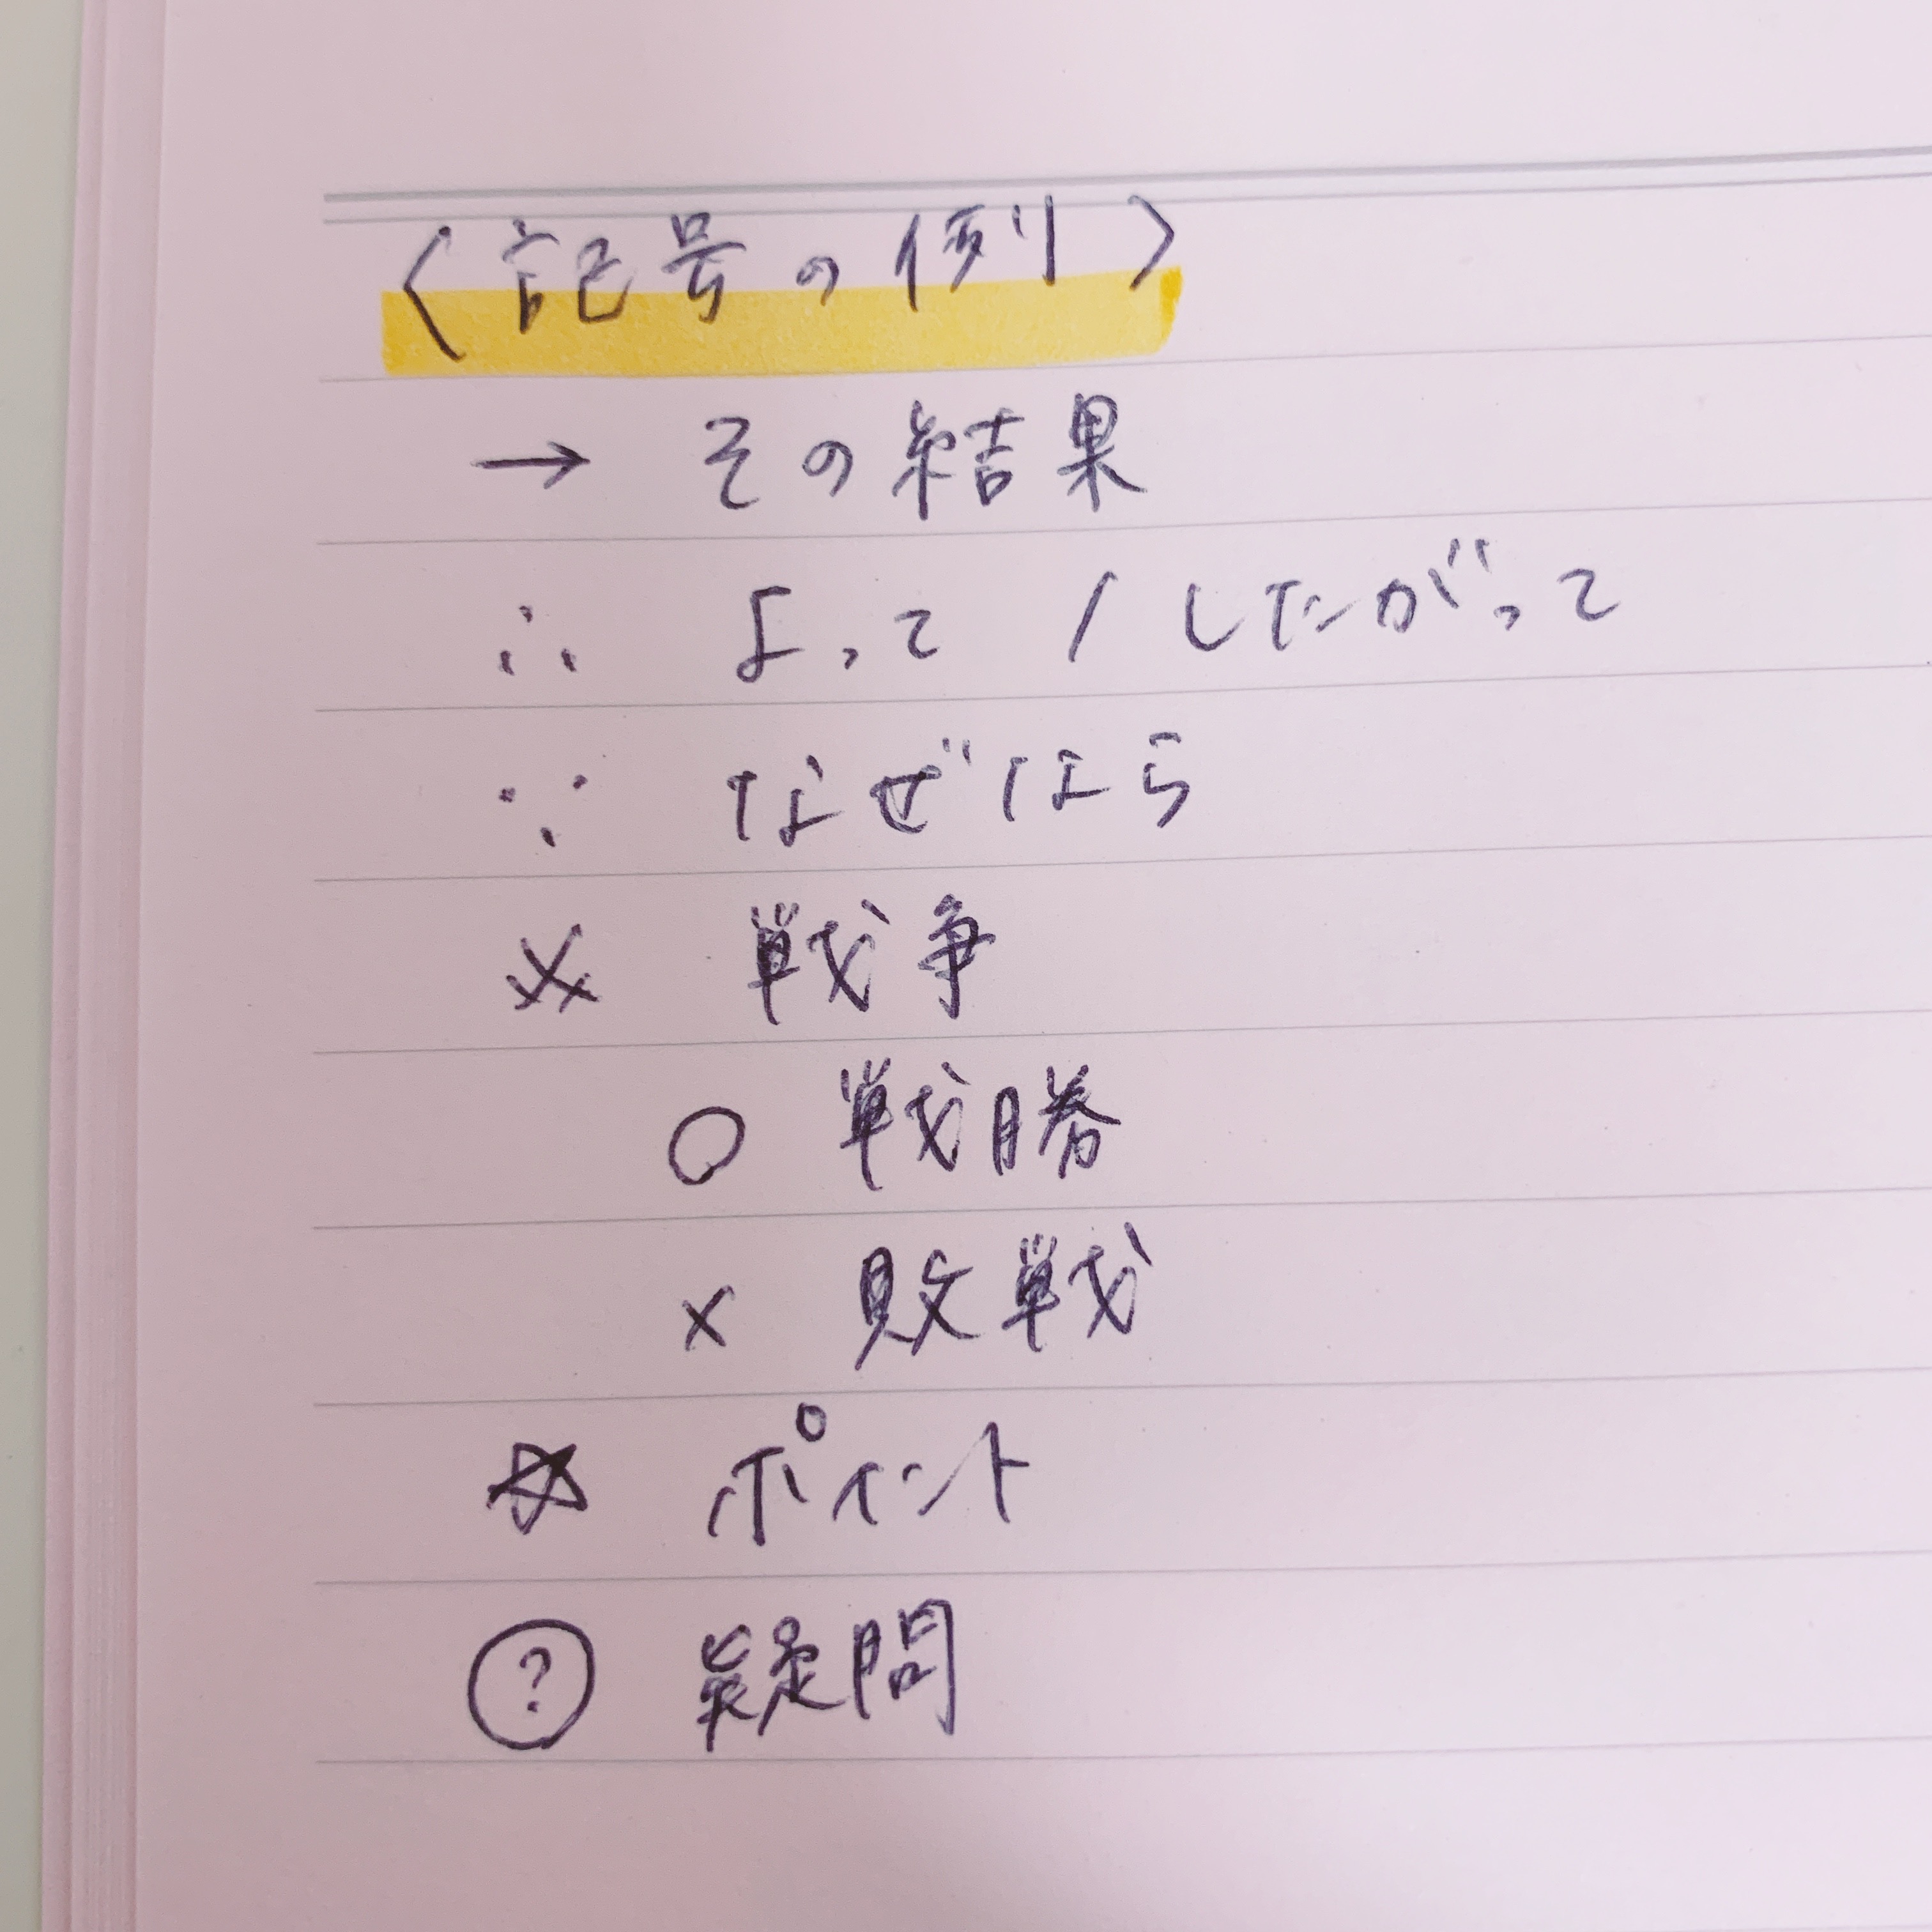 〈記号の例〉
→ その結果
∴ よって / したがって
∵ なぜなら
※ 戦争
○ 戦勝
× 敗戦
☆ ポイント
? 疑問